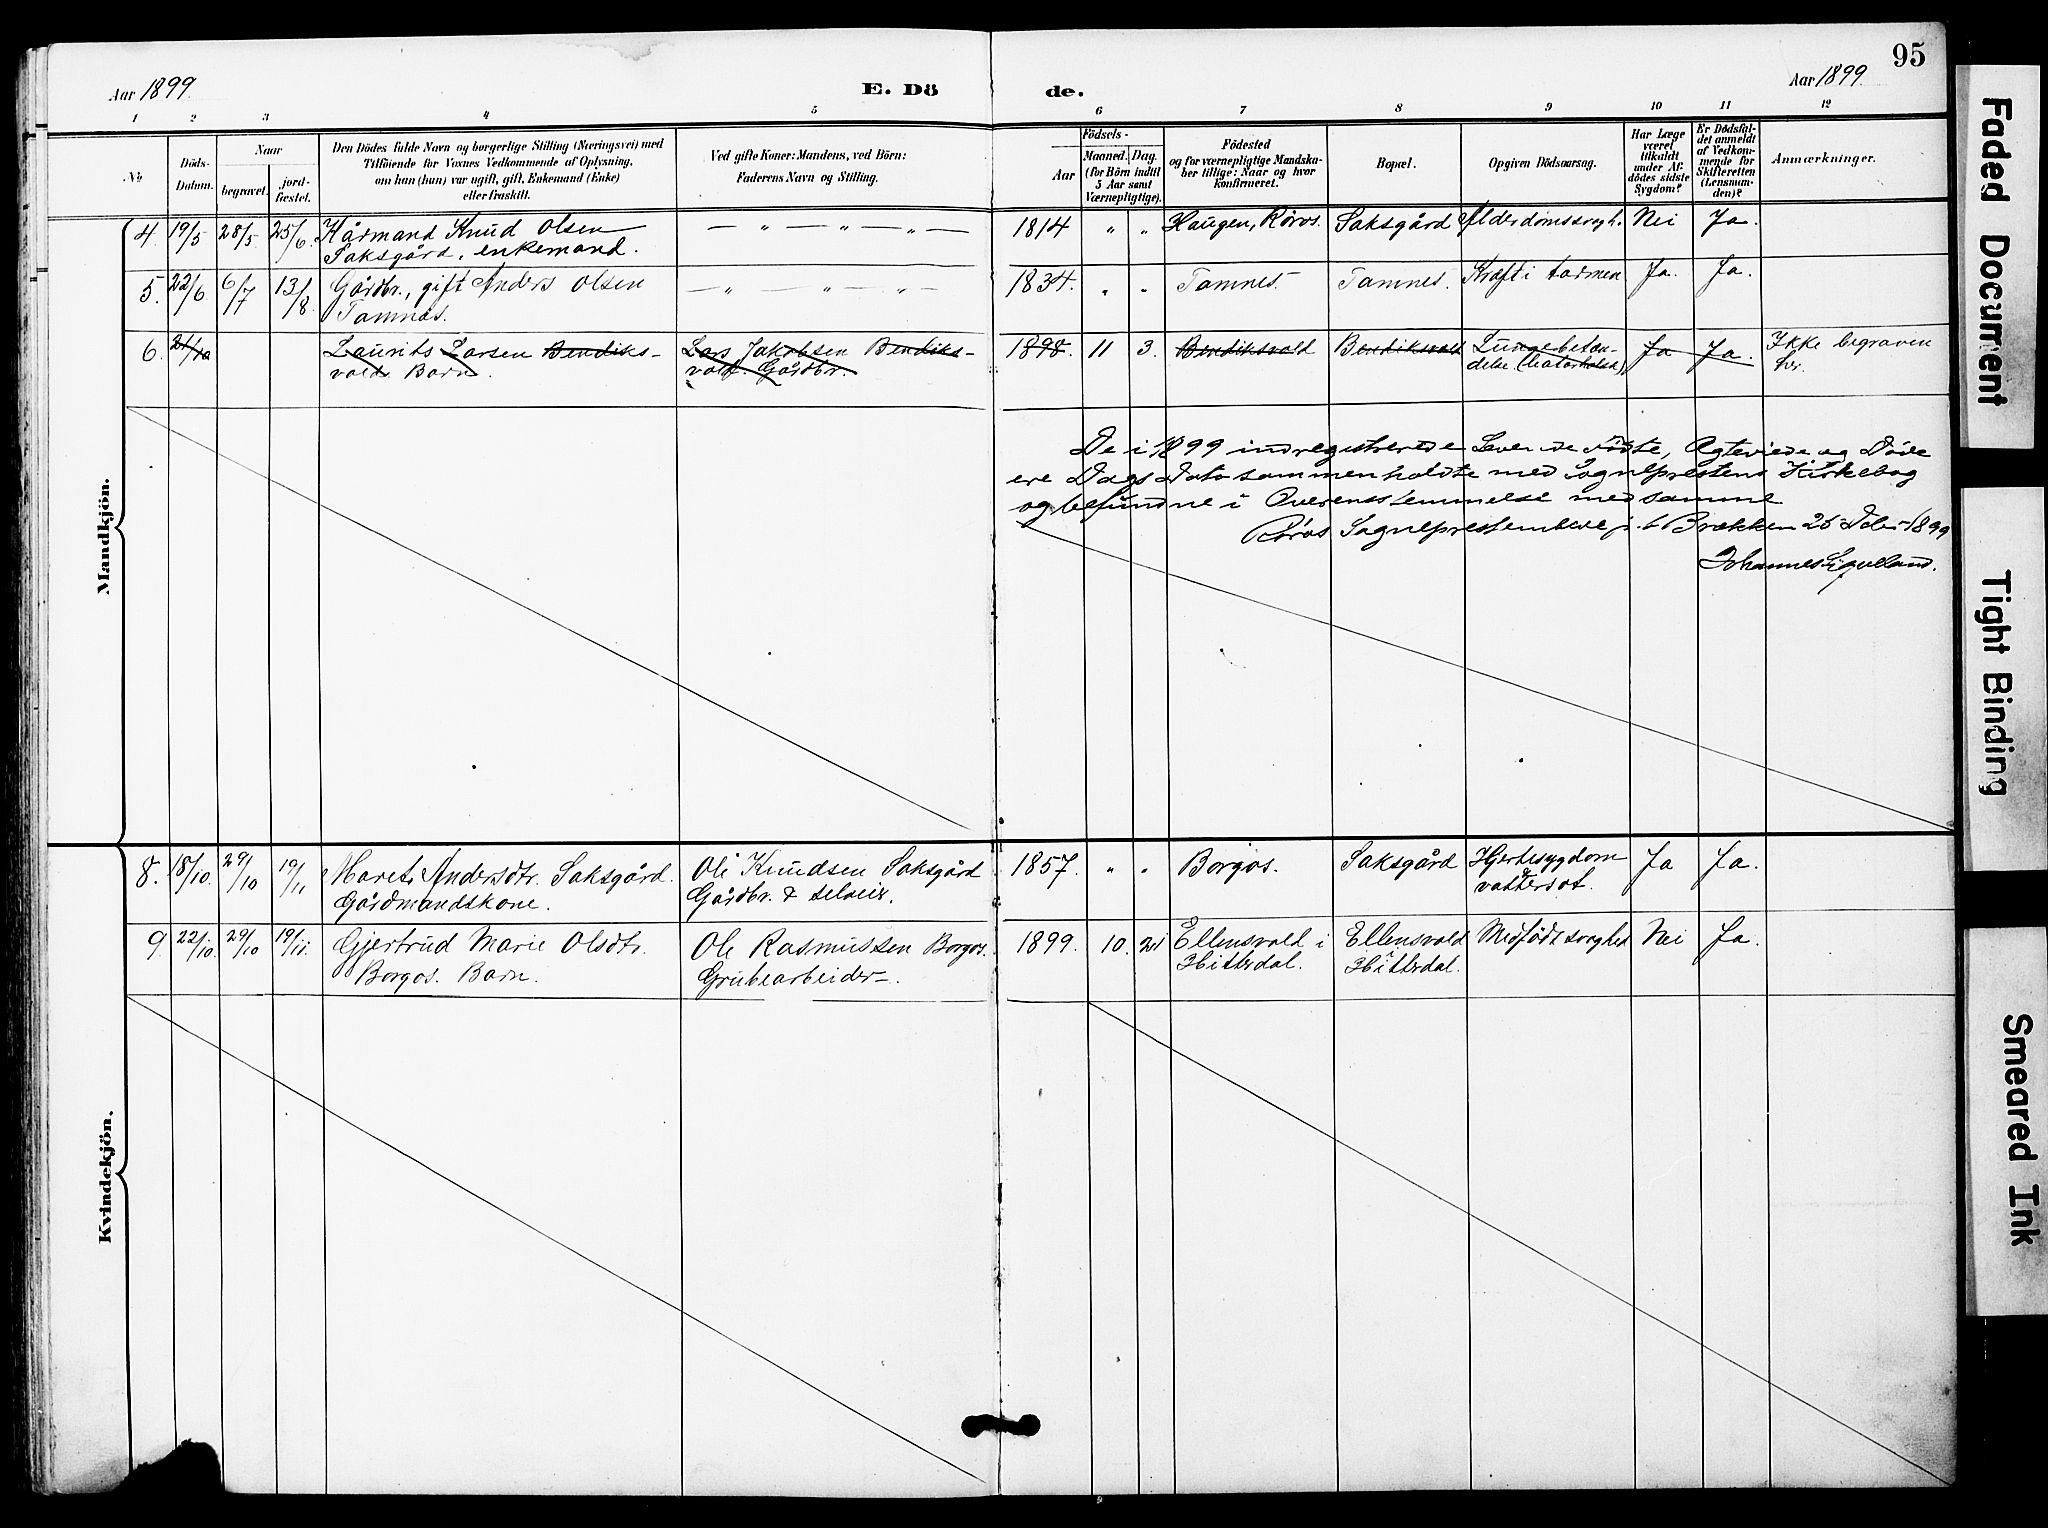 95
Aar 1899
E. Dö
de.
Aar 1899.
1 2 3 4 5 6 7 8 9 10 11 12
No
Döds-
Datum.
Naar
begravet.
jord-
fæstet.
Den Dödes fulde Navn og borgerlige Stilling (Næringsvei) med
Tilföiende for Voxnes Vedkommende af Oplysning,
om han (hun) var ugift, gift, Enkemand (Enke)
eller fraskilt.
Ved gifte Koner: Mandens, ved Börn:
Faderens Navn og Stilling.
Födsels-
Aar
Maaned. Dag.
(for Börn indtil
5 Aar samt
Værnepligtige).
Födested
og for værnepligtige Mandska-
ber tillige: Naar og hvor
konfirmeret.
Bopæl.
Opgiven Dödsaarsag.
Har Læge
været
tilkaldt
under Af-
dödes sidste
Sygdom?
Er Dödsfal-
det anmeldt
af Vedkom-
mende for
Skifteretten
(Lensman-
den)?
Anmærkninger.
Mandkjön.
4. 19/5 28/5 25/6. Kårmand Knud Olsen — „ — „ — „ — 1814 „ „ Haugen, Røros. Saksgård Alderdomssvagh. Nei Ja.
Saksgård, enkemand.
5. 22/6 6/7 13/8 Gårdbr., gift Anders Olsen — „ — „ — „ — 1834. „ „ Tamnes. Tamnes. Kræft i tarmen Ja. Ja.
Tamnes.
6. 21/10 Laurits Larsen Bendiks- Lars Jakobsen Bendiks- 1898. 11 3. Bendiksvold Bendiksvold Lungebetæn- Ja Ja. Ikke begraven
vold. Barn. vold. Gårdbr. delse. her.
De i 1899 indregistrerede Levende Fødte, Ægteviede og Døde
ere Dags Dato sammenholdte med Sognepræstens Kirkebog
og befundne i Overensstemmelse med samme
Røros Sognepræstembede p. t. Brækken 25 Dcbr 1899
Johannes
Kvindekjön.
8. 18/10. 29/10 19/11 Maret Andersdtr. Saksgård. Ole Knudsen Saksgård 1857. „ „ Borgos. Saksgård Hjertesygdom Ja Ja.
Gårdmandskone. Gårdbr. & selveier. & vattersot.
9. 22/10. 29/10 19/11. Gjertrud Marie Olsdtr. Ole Rasmussen Borgos. 1899. 10. 21 Ellensvold i Ellensvold Medfødt svaghed Nei Ja.
Borgos. Barn. Grubearbeider. Hitterdal. i Hitterdal.
Faded Document
Tight Binding
Smeared Ink